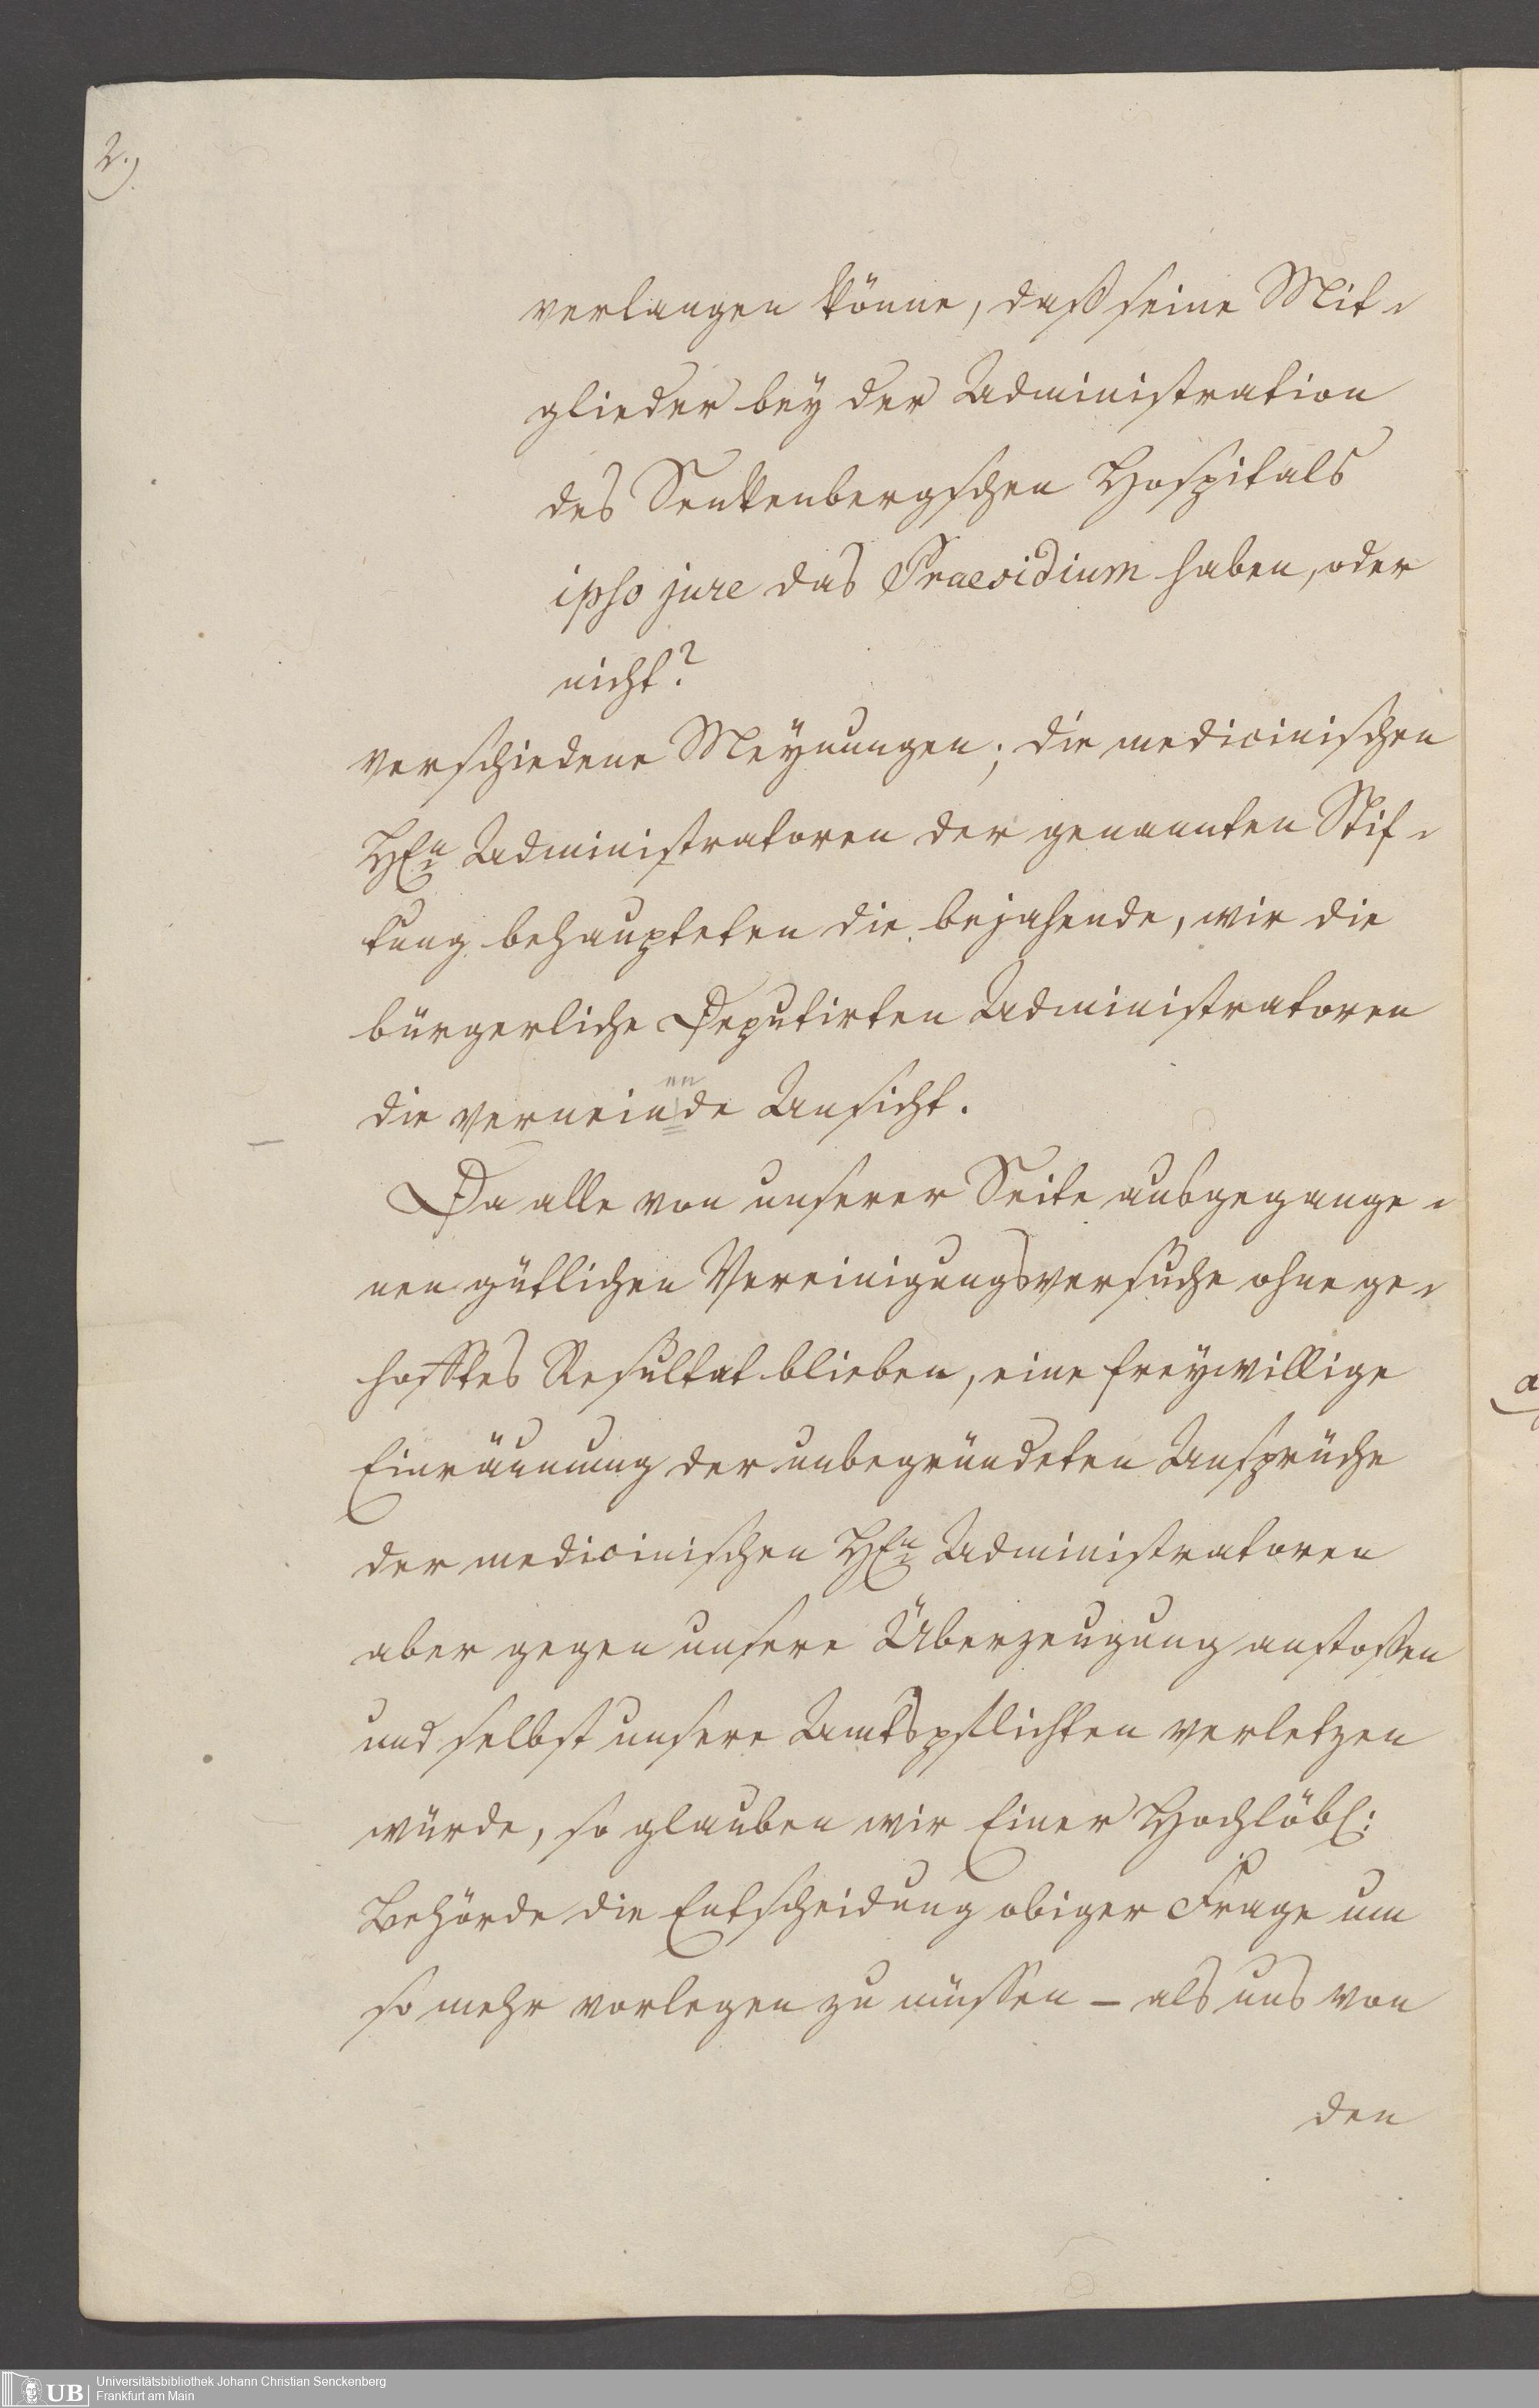 2.)
verlangen könne, daß seine Mit-
glieder bey der Administration
des Senkenbergschen Hospitals
ipso jure das Praesidium haben, oder
nicht?
verschiedene Meynungen; die medicinischen
HEn Administratoren der genannten Stif-
tung behaupteten die bejahende, wir die
bürgerliche Deputirten Administratoren
die verneinde Ansicht.
en
Da alle von unserer Seite ausgegange-
nen gütlichen Vereinigungsversuche ohne ge-
hofftes Resultat blieben, eine freywillige
Einräumung der unbegründeten Ansprüche
der medicinischen HEn Administratoren
aber gegen unsere Überzeugung anstoßen
und selbst unsere Amtspflichten verletzen
würde, so glauben wir Einer Hochlöbl:
Behörde die Entscheidung obiger Frage um
so mehr vorlegen zu müssen – als uns von
den
UB
Universitätsbibliothek Johann Christian Senckenberg
Frankfurt am Main